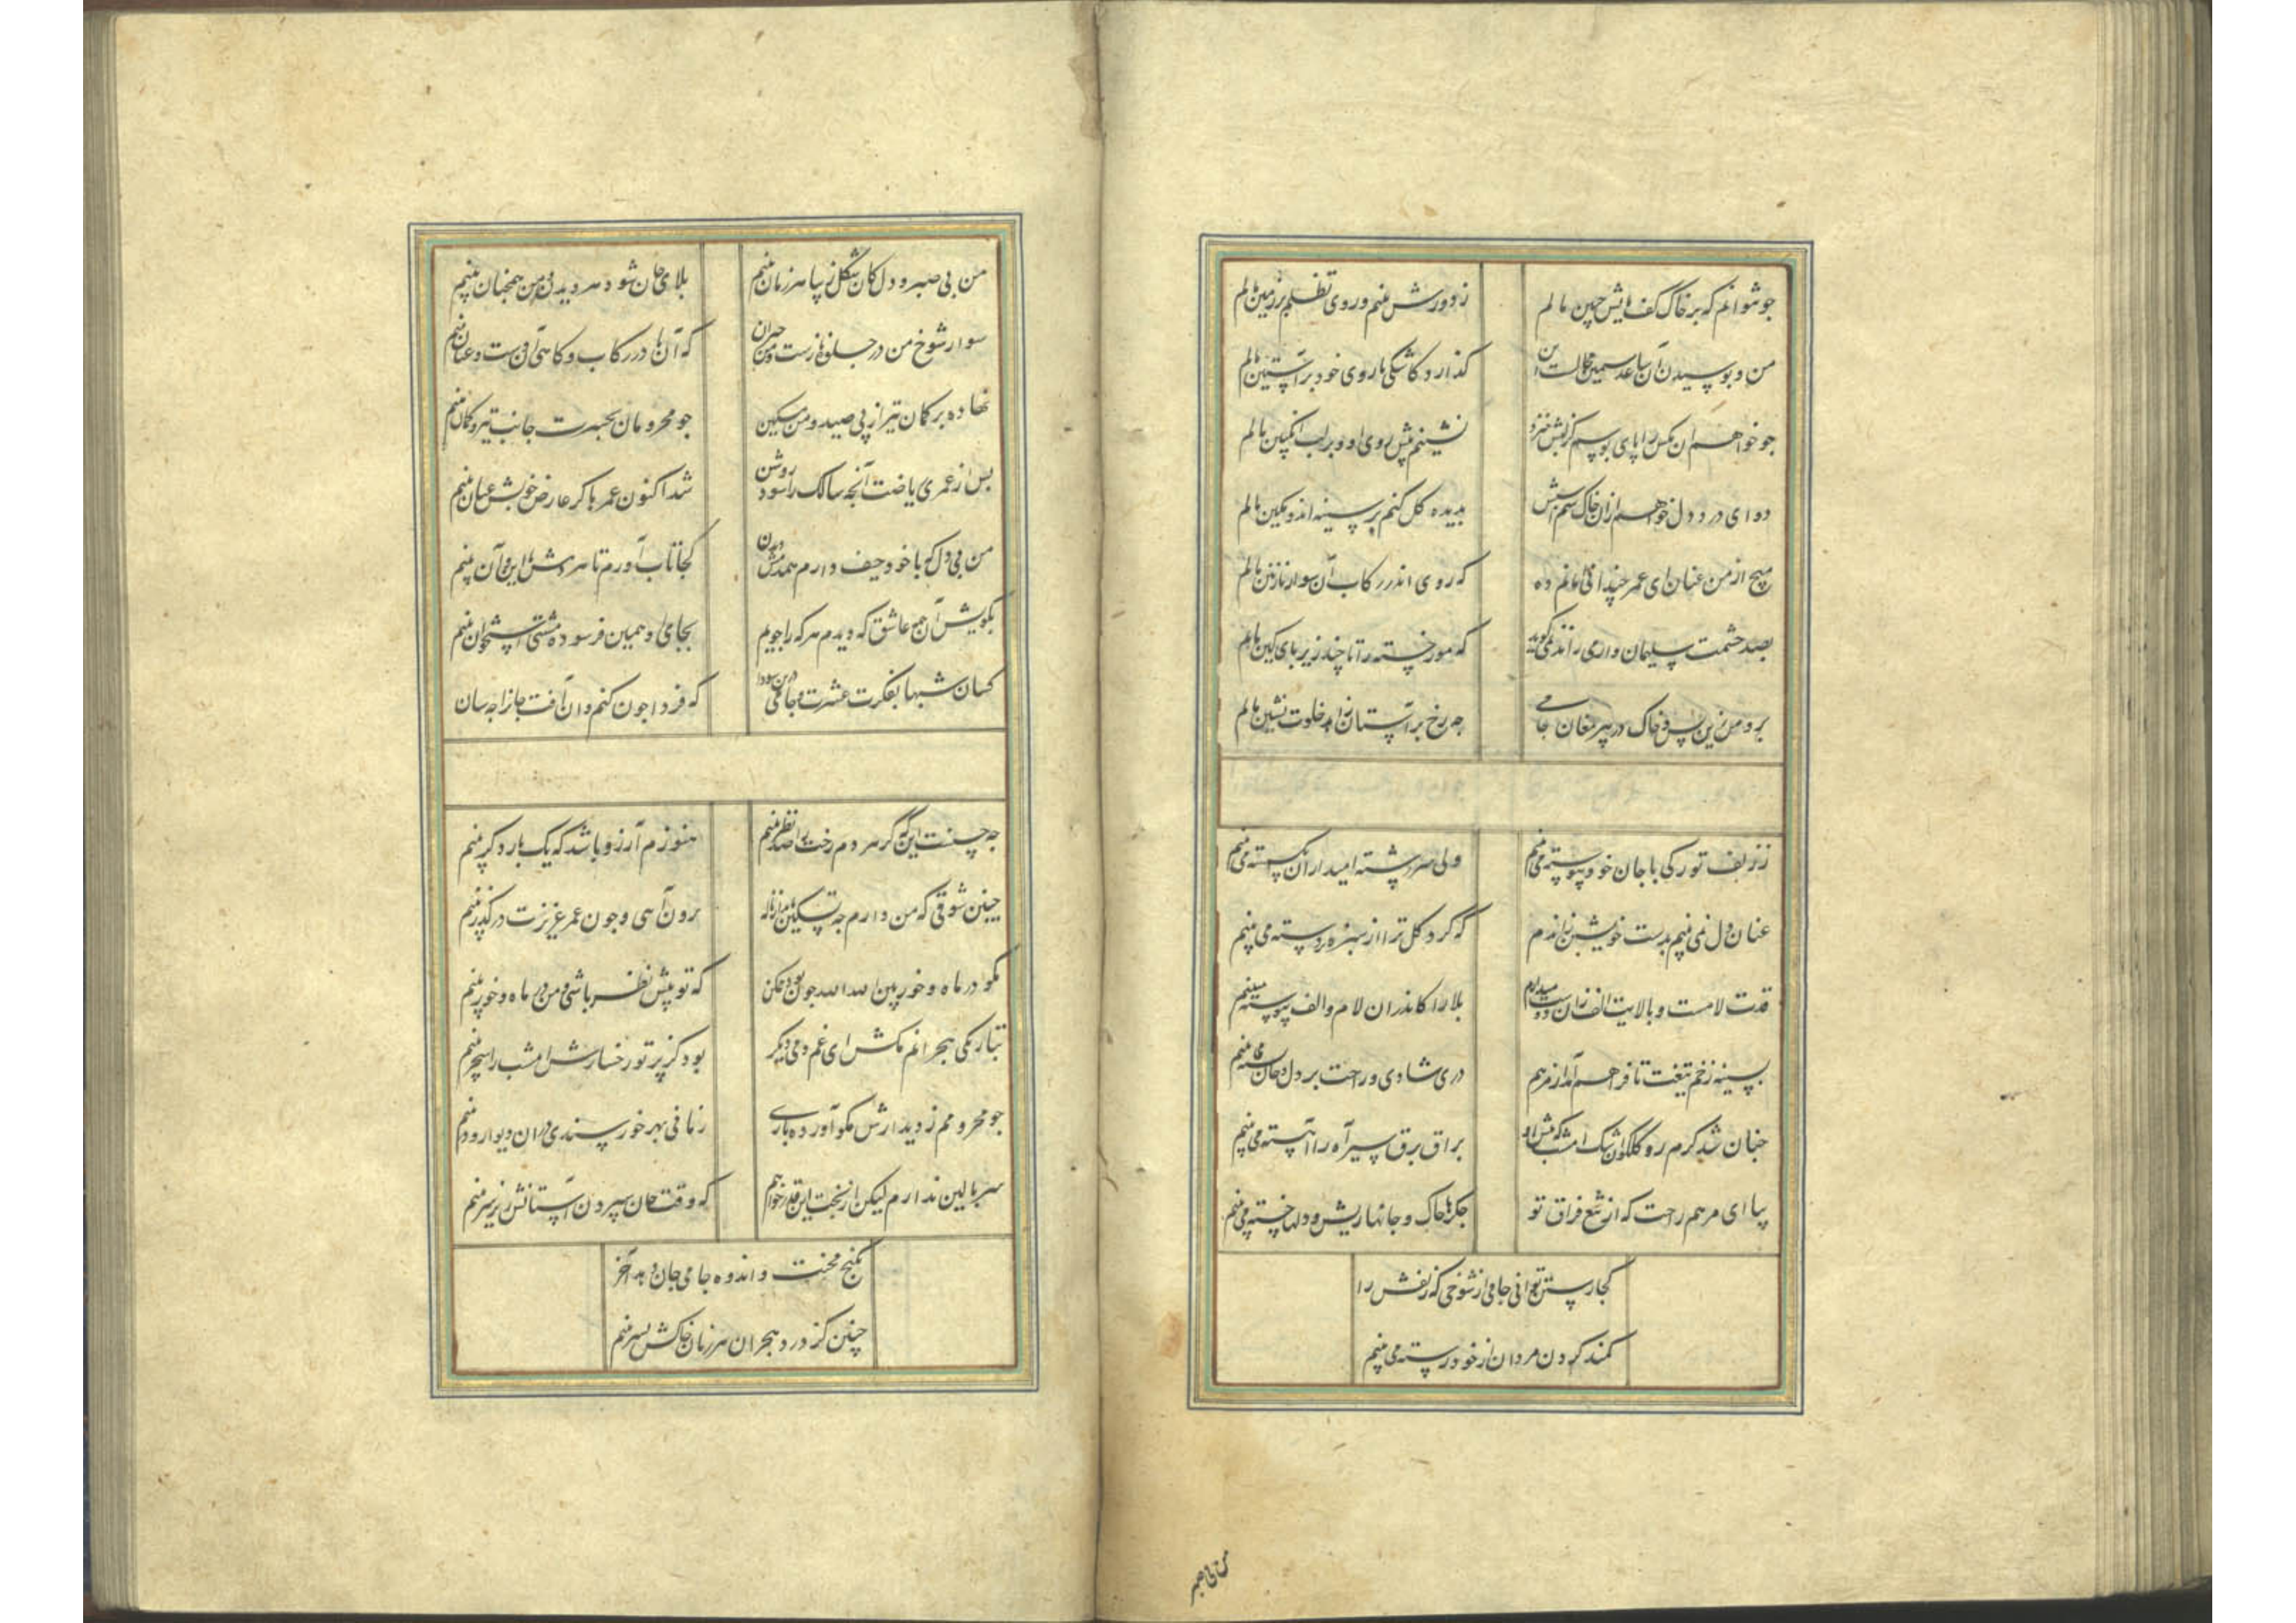 چو نتوانم که بر خاک کف پایش جبین مالم
ز دورش بینم و روی تظلم بر زمین مالم
من و بوسیدن آن ساعد سیمین محالست این
گذارد کاشکی تا روی خود بر آستین مالم
چو خواهم آن مگس را پای بوسم کز لبش خیزد
نشینم پیش روی او و بر لب انگبین مالم
دوای درد دل خواهم از آن خاک سم اسپش
بدیده گل کنم بر سینه اندوهگین مالم
مپیچ از من عنان ای عمر چندانی امانم ده
که روی اندر رکاب آن سوار نازنین مالم
بصد حشمت سلیمان وار می راند نمی گوید
که مور خسته را تا چند زیر پای کین مالم
برو من زین پس و خاک در پیر مغان جامی
چه رخ بر آستان زاهد خلوت نشین مالم
ز زلف تو رگی با جان خود پیوسته می بینم
ولی سررشته امید از آن بگسسته می بینم
عنان دل نمی بینم بدست خویشتن زاندم
که گرد گل ترا از سبزه تر دسته می بینم
قدت لامست و بالایت الف زان دوست میدارم
بلا را کاندران لام و الف پیوسته می بینم
بسینه زخم تیغت تا فراهم آمد از مرهم
در شادی و راحت بر دل و جان بسته می بینم
چنان شد گرم رو گلگون اشک امشب که پیش او
براق برق سیر آه را آهسته می بینم
بیا ای مرهم راحت که از تیغ فراق تو
جگرها چاک و جانها ریش و دلها خسته می بینم
کجا رستن توانی جامی از شوخی که زلفش را
کمند گردن مردان از خود رسته می بینم
من بی صبر
من بی صبر و دل کان شکل زیبا هر زمان بینم
بلای جان شود هر دیدن و من همچنان بینم
سوار شوخ من در جلوه نازست و من حیران
که آن پا در رکاب و گاهی آن دست و عنان بینم
نهاده بر کمان تیر از پی صید و من مسکین
چو محرومان بحسرت جانب تیر و کمان بینم
پس از عمری ریاضت آنچه سالک را شود روشن
شد اکنون عمرها کز عارض خوبش عیان بینم
من بی دل که با خود حیف دارم همدمش دیدن
کجا تاب آورم تا هر دمش با این و آن بینم
بکویش آن همه عاشق که دیدم هر که را جویم
بجای او همین فرسوده مشتی استخوان بینم
کسان شبها بفکرت عشرت و جامی درین سودا
که فردا چون کنم وان آفت جان را چه سان
چه حسنست این که گر هر دم رخت را صد نظر بینم
هنوزم آرزو باشد که یک بار دگر بینم
چنین شوقی که من دارم چه تسکین یابم از ناله
برون آهی و چون عمر عزیزت در گذر بینم
مگو در ماه و خور بین الله الله چون بود ممکن
که تو پیش نظر باشی و من در ماه و خور بینم
بتاریکی هجرانم مکش ای غم دمی دیگر
بود کز پرتو رخسارش امشب را سحر بینم
چو محرومم ز دیدارش مگو آورده باری
زمانی بهر خورسندی در آن دیوار و در بینم
سر بالین ندارم لیکن از بخت این قدر خواهم
که وقت جان سپردن آستانش زیر سر بینم
بکنج محنت و اندوه جامی جان دهد آخر
چنین کز درد هجران هر زمان خاکش بسر بینم